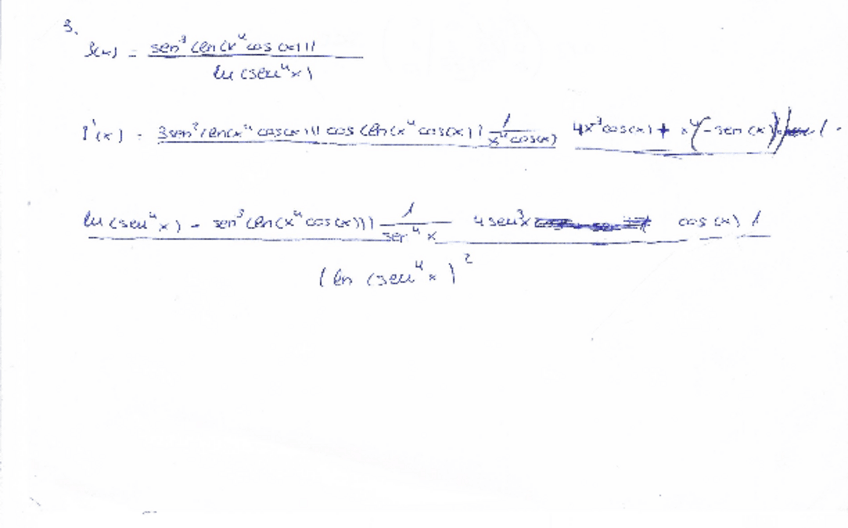 3.
f(x) = sen³(ln(x⁴cos(x)))
ln(sen⁴x)
f'(x) = 3sen²(ln(x⁴cos(x))) cos(ln(x⁴cos(x))) 1/(x⁴cos(x)) 4x³cos(x) + x⁴(-sen(x)) ·
ln(sen⁴x) - sen³(ln(x⁴cos(x))) 1/(sen⁴x) 4sen³x cos(x) 1
(ln(sen⁴x))²